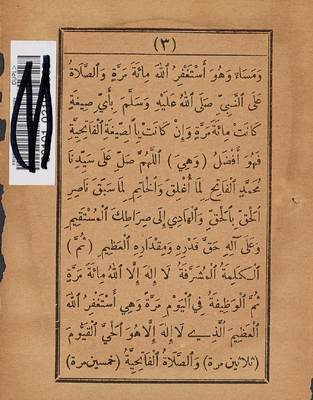 (٣)
وَمَسَاءً وَهُوَ أَسْتَغْفِرُ اللهَ مِائَةَ مَرَّةٍ وَالصَّلَاةُ
عَلَى النَّبِيِّ صَلَّى اللهُ عَلَيْهِ وَسَلَّمَ بِأَيِّ صِيغَةٍ
كَانَتْ مِائَةَ مَرَّةٍ وَإِنْ كَانَتْ بِالصِّيغَةِ الْفَاتِحِيَّةِ
فَهُوَ أَفْضَلُ (وَهِيَ) اَللّٰهُمَّ صَلِّ عَلَى سَيِّدِنَا
مُحَمَّدٍ الْفَاتِحِ لِمَا أُغْلِقَ وَالْخَاتِمِ لِمَا سَبَقَ نَاصِرِ
الْحَقِّ بِالْحَقِّ وَالْهَادِي إِلَى صِرَاطِكَ الْمُسْتَقِيمِ
وَعَلَى آلِهِ حَقَّ قَدْرِهِ وَمِقْدَارِهِ الْعَظِيمِ (ثُمَّ)
الْكَلِمَةُ الْمُشَرَّفَةُ لَا إِلٰهَ إِلَّا اللهُ مِائَةَ مَرَّةٍ
ثُمَّ الْوَظِيفَةُ فِي الْيَوْمِ مَرَّةً وَهِيَ أَسْتَغْفِرُ اللهَ
الْعَظِيمَ الَّذِي لَا إِلٰهَ إِلَّا هُوَ الْحَيَّ الْقَيُّومَ
(ثلاثين مرة) وَالصَّلَاةُ الْفَاتِحِيَّةُ (خمسين مرة)